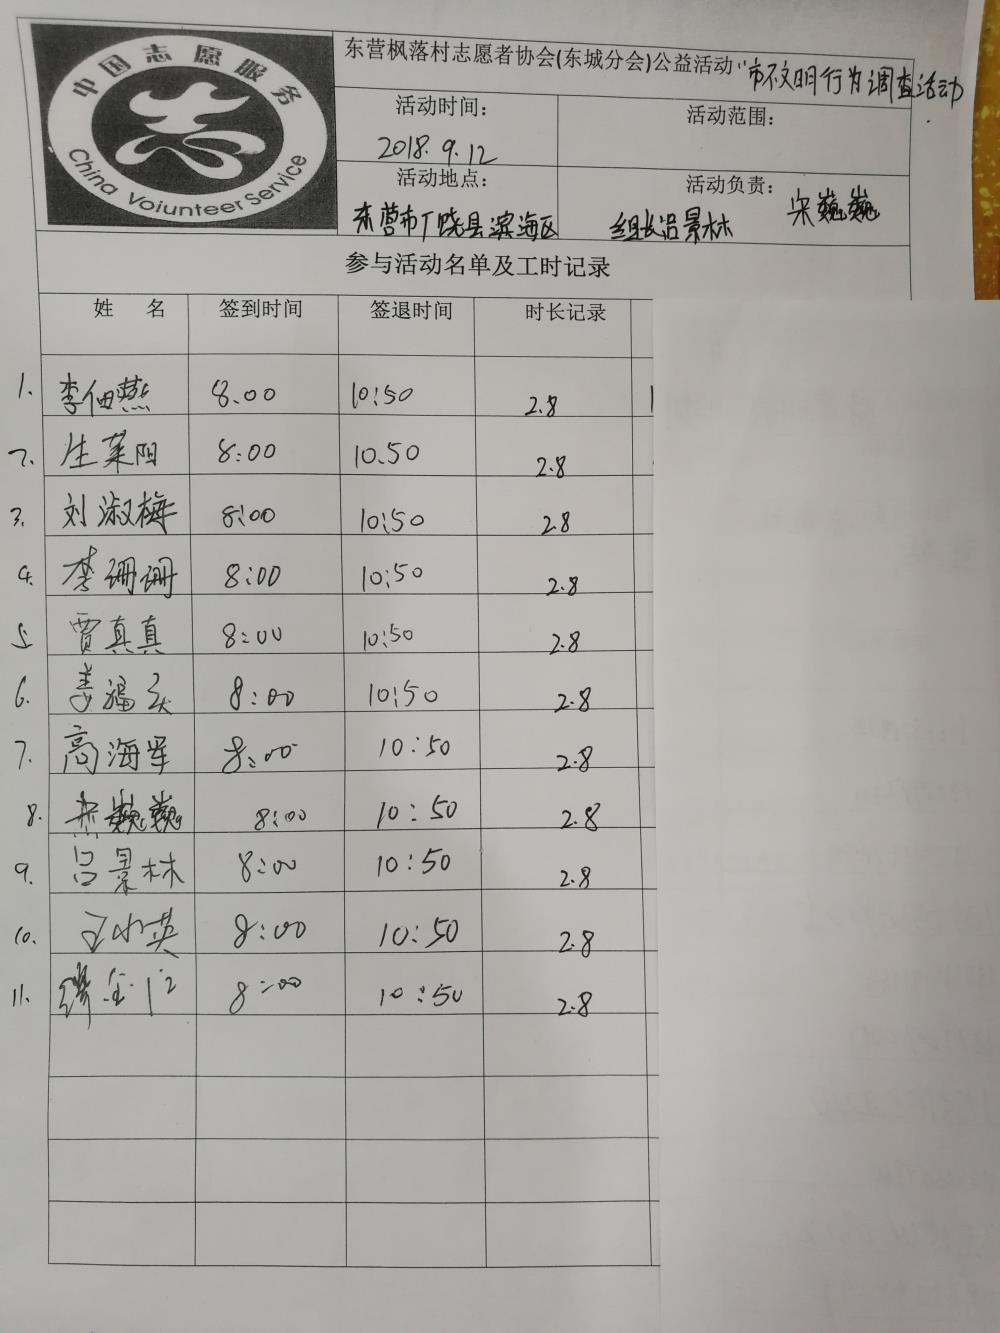 中国志愿服务
China Voiunteer Service
东营枫落村志愿者协会(东城分会)公益活动"市不文明行为调查活动
活动时间： 活动范围：
2018.9.12
活动地点： 活动负责： 宋巍巍
东营市广饶县滨海区 组长吕景林
参与活动名单及工时记录
姓 名 签到时间 签退时间 时长记录
1. 李佃燕 8.00 10:50 2.8
2. 生莱阳 8:00 10.50 2.8
3. 刘淑梅 8:00 10:50 2.8
4. 李珊珊 8:00 10:50 2.8
5. 贾真真 8:00 10:50 2.8
6. 姜福 8:00 10:50 2.8
7. 高海军 8:00 10:50 2.8
8. 宋巍巍 8:00 10:50 2.8
9. 吕景林 8:00 10:50 2.8
10. 王小英 8:00 10:50 2.8
11. 8:00 10:50 2.8